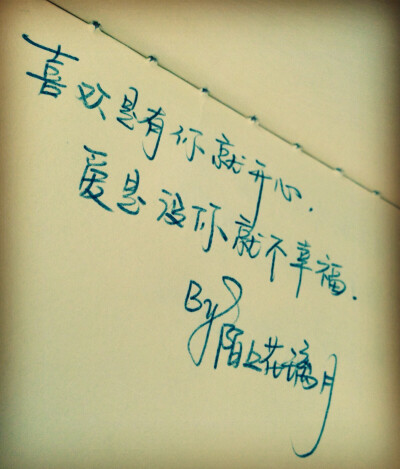 喜欢是有你就开心.
爱是没你就不幸福.
By 陌上花漓月